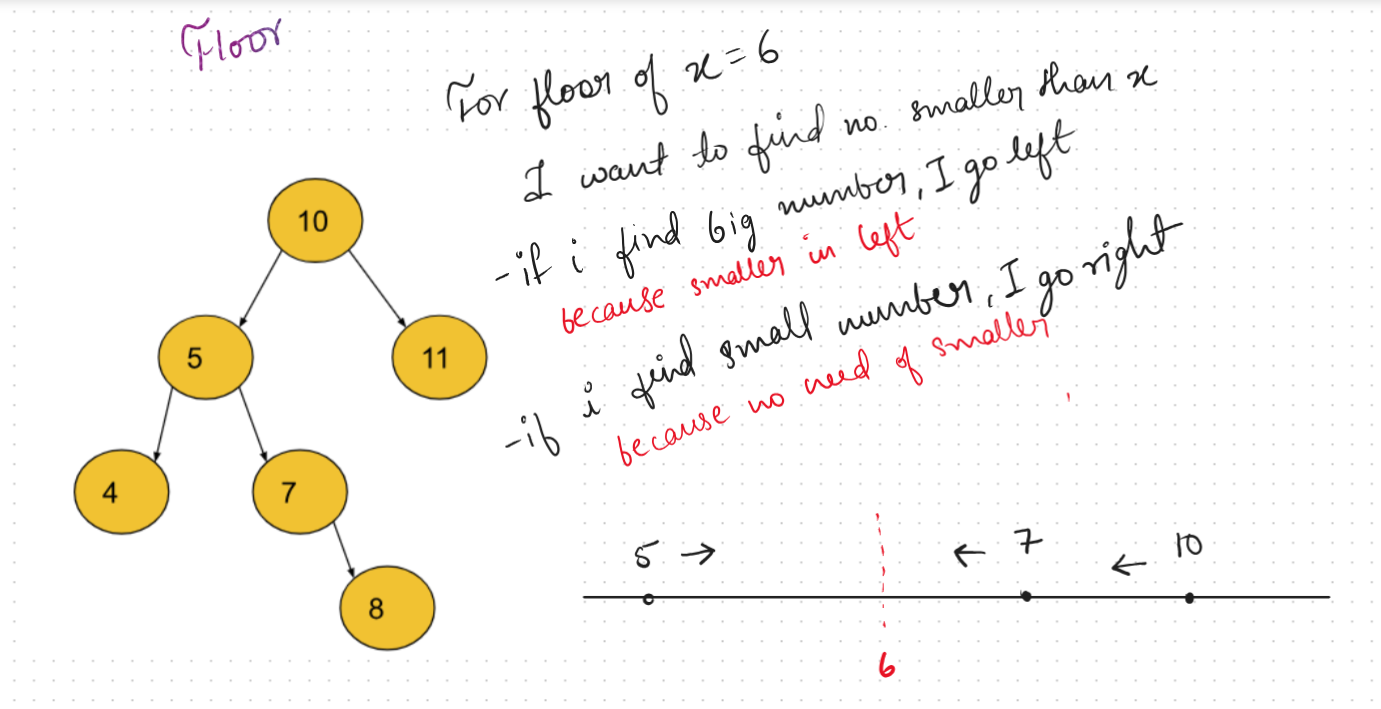 Floor
For floor of x = 6
I want to find no. smaller than x
- if i find big number, I go left
because smaller in left
- if i find small number, I go right
because no need of smaller
10
5
11
4
7
8
5 → ← 7 ← 10
6